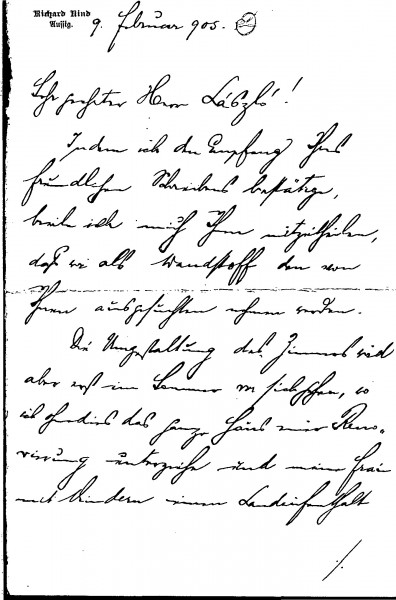 Richard Lind
Aussig.
9. Februar 905.
Sehr geehrter Herr László!
Indem ich den Empfang Ihres
freundlichen Schreibens bestätige,
beeile ich mich Ihnen mitzutheilen,
daß wir als Wandstoff den von
Ihnen ausgesuchten nehmen werden.
Die Umgestaltung des Zimmers wird
aber erst im Sommer vor sich gehen, wo
ich ohndies das ganze Haus einer Reno-
vierung unterziehe und meine Frau
mit Kindern einen Landaufenthalt
./.